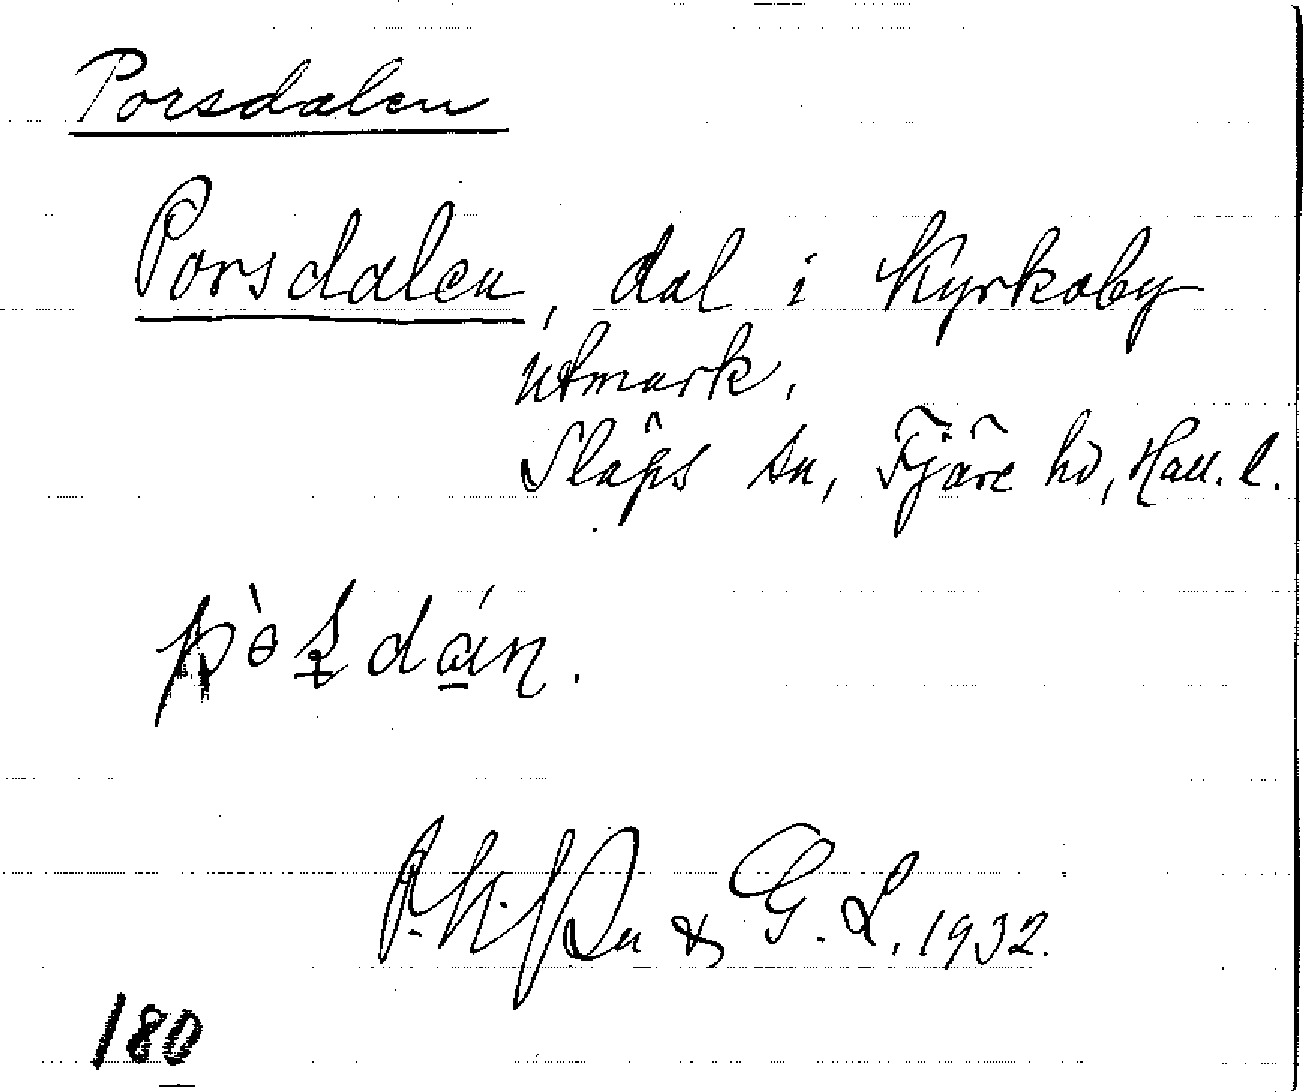 Porsdalen
Porsdalen, dal i Kyrkoby
utmark.
Släps sn, Fjäre hd, Hall. l.
1932.
180